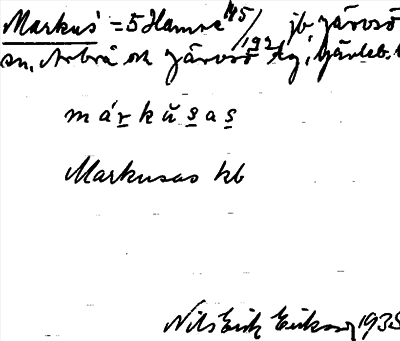 Markus = 5 Hamre 145/192 jb. Järvsö
sn. Arbrå och Järvsö tg, Gävleb. l
m á r k ŭ s a s
Markusas kb
Nils Erik Eriksson 1935